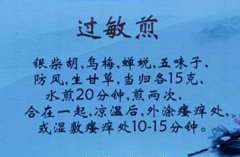 过敏煎
银柴胡,乌梅,蝉蜕,五味子,
防风,生甘草,当归各15克,
水煎20分钟,煎两次,
合在一起,凉温后,外涂瘙痒处,
或湿敷瘙痒处10-15分钟。